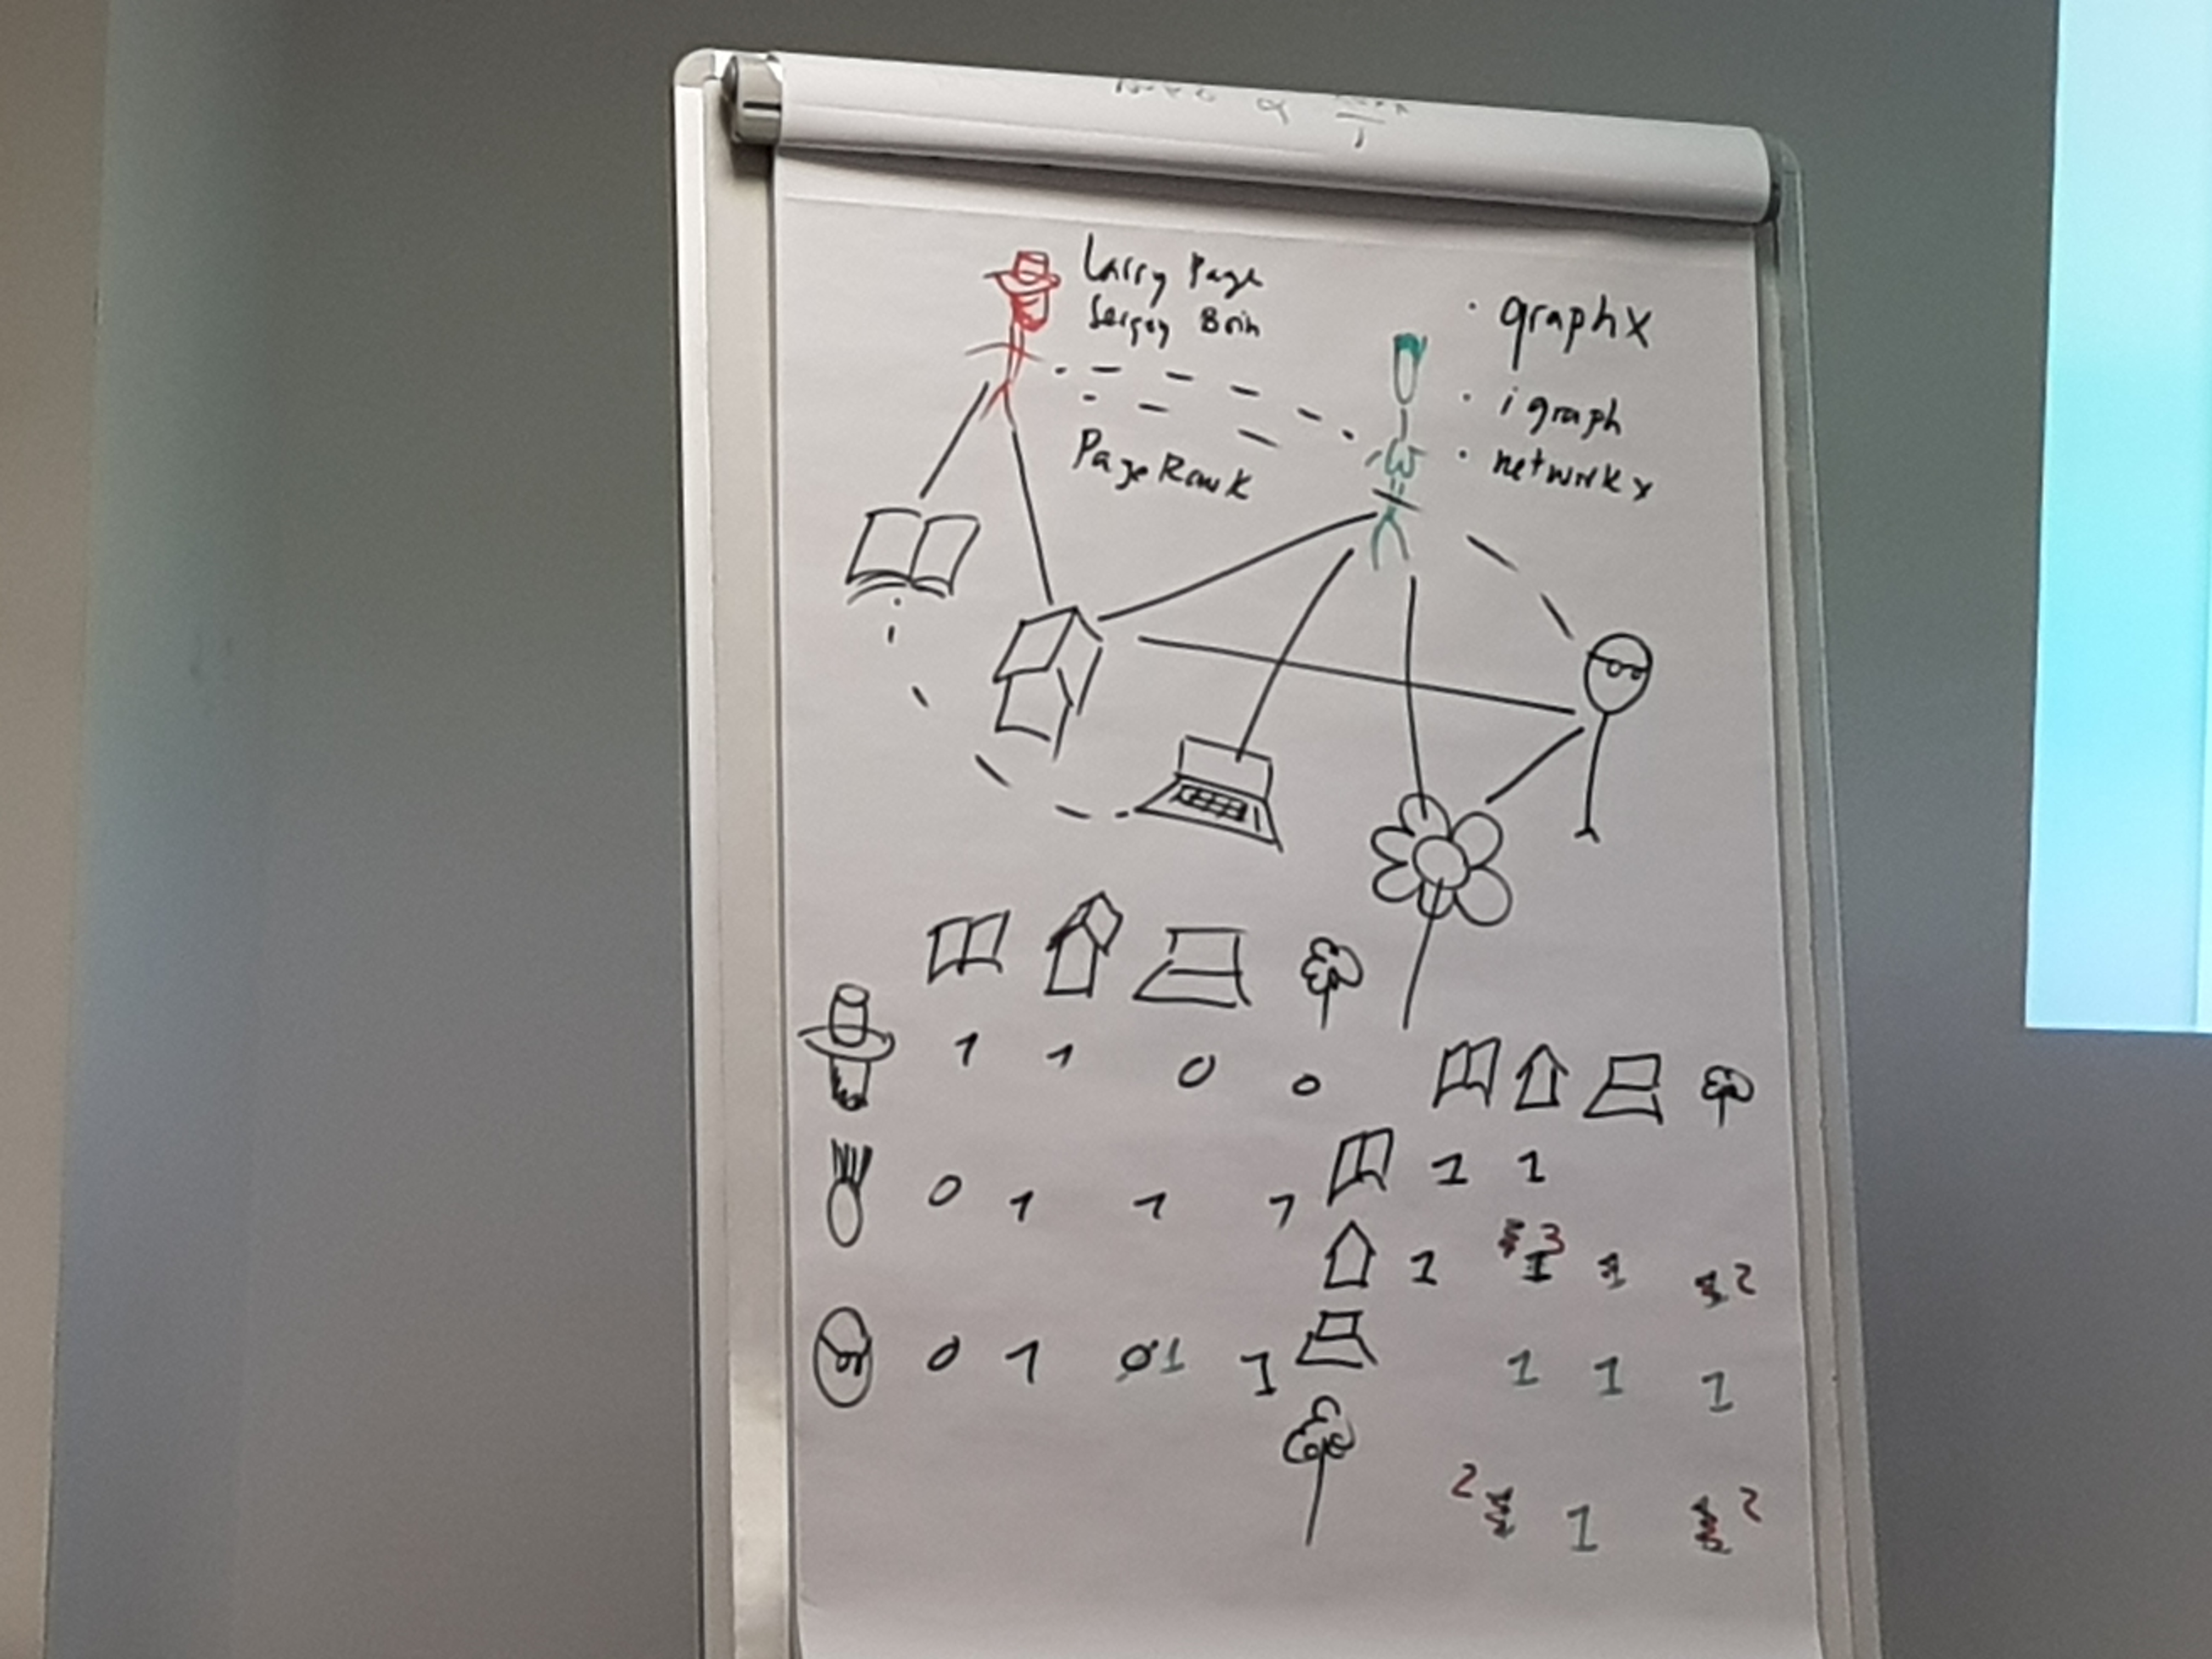 Larry Page
Sergey Brin
PageRank
· graphX
· igraph
· networkx
1 1 0 0
0 1 1 1
0 1 0 1 1
1 1
1 3 1 1 2
1 1 1
2 1 2